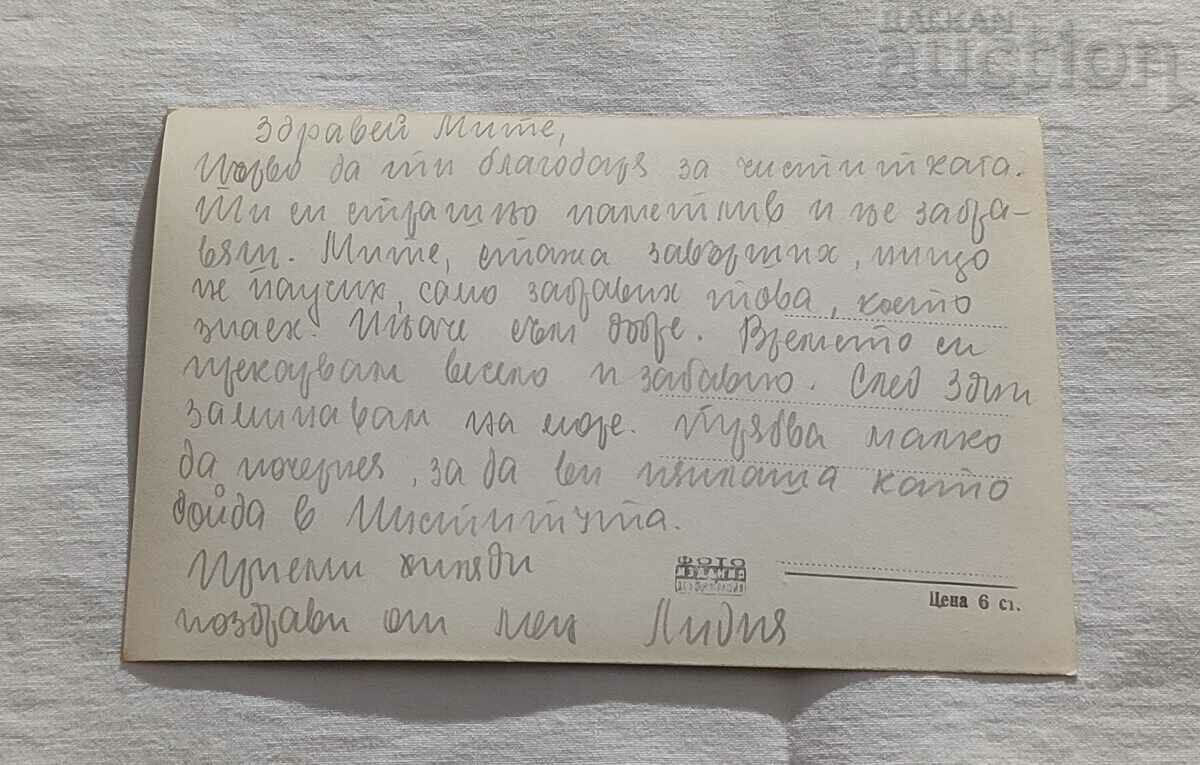 BALKAN
auction
Здравей Мите,
Първо да ти благодаря за честитката.
Ти си страшно паметлив и не забра-
вяш. Мите, стажа завърших, нищо
не научих, само забравих това, което
знаех. Иначе съм добре. Времето си
прекарвам весело и забавно. След 3 дни
заминавам на море. Трябва малко
да почерня, за да ви уплаша като
дойда в Института.
Приеми хиляди
поздрави от мен Лидия
ФОТО
ИЗДАНИЕ
Цена 6 ст.